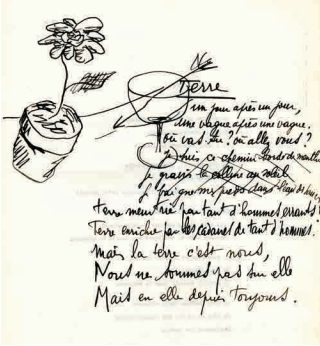 Terre
un jour après un jour,
une vague après une vague.
où vas-tu? où allez vous?
je suis ce chemin
je gravis la colline au soleil
je baigne mes pieds dans l'eau de
terre meurtrie par tant d'hommes errants
Terre enrichie par les cadavres de tant d'hommes.
mais la terre c'est nous,
Nous ne sommes pas sur elle
Mais en elle depuis toujours.